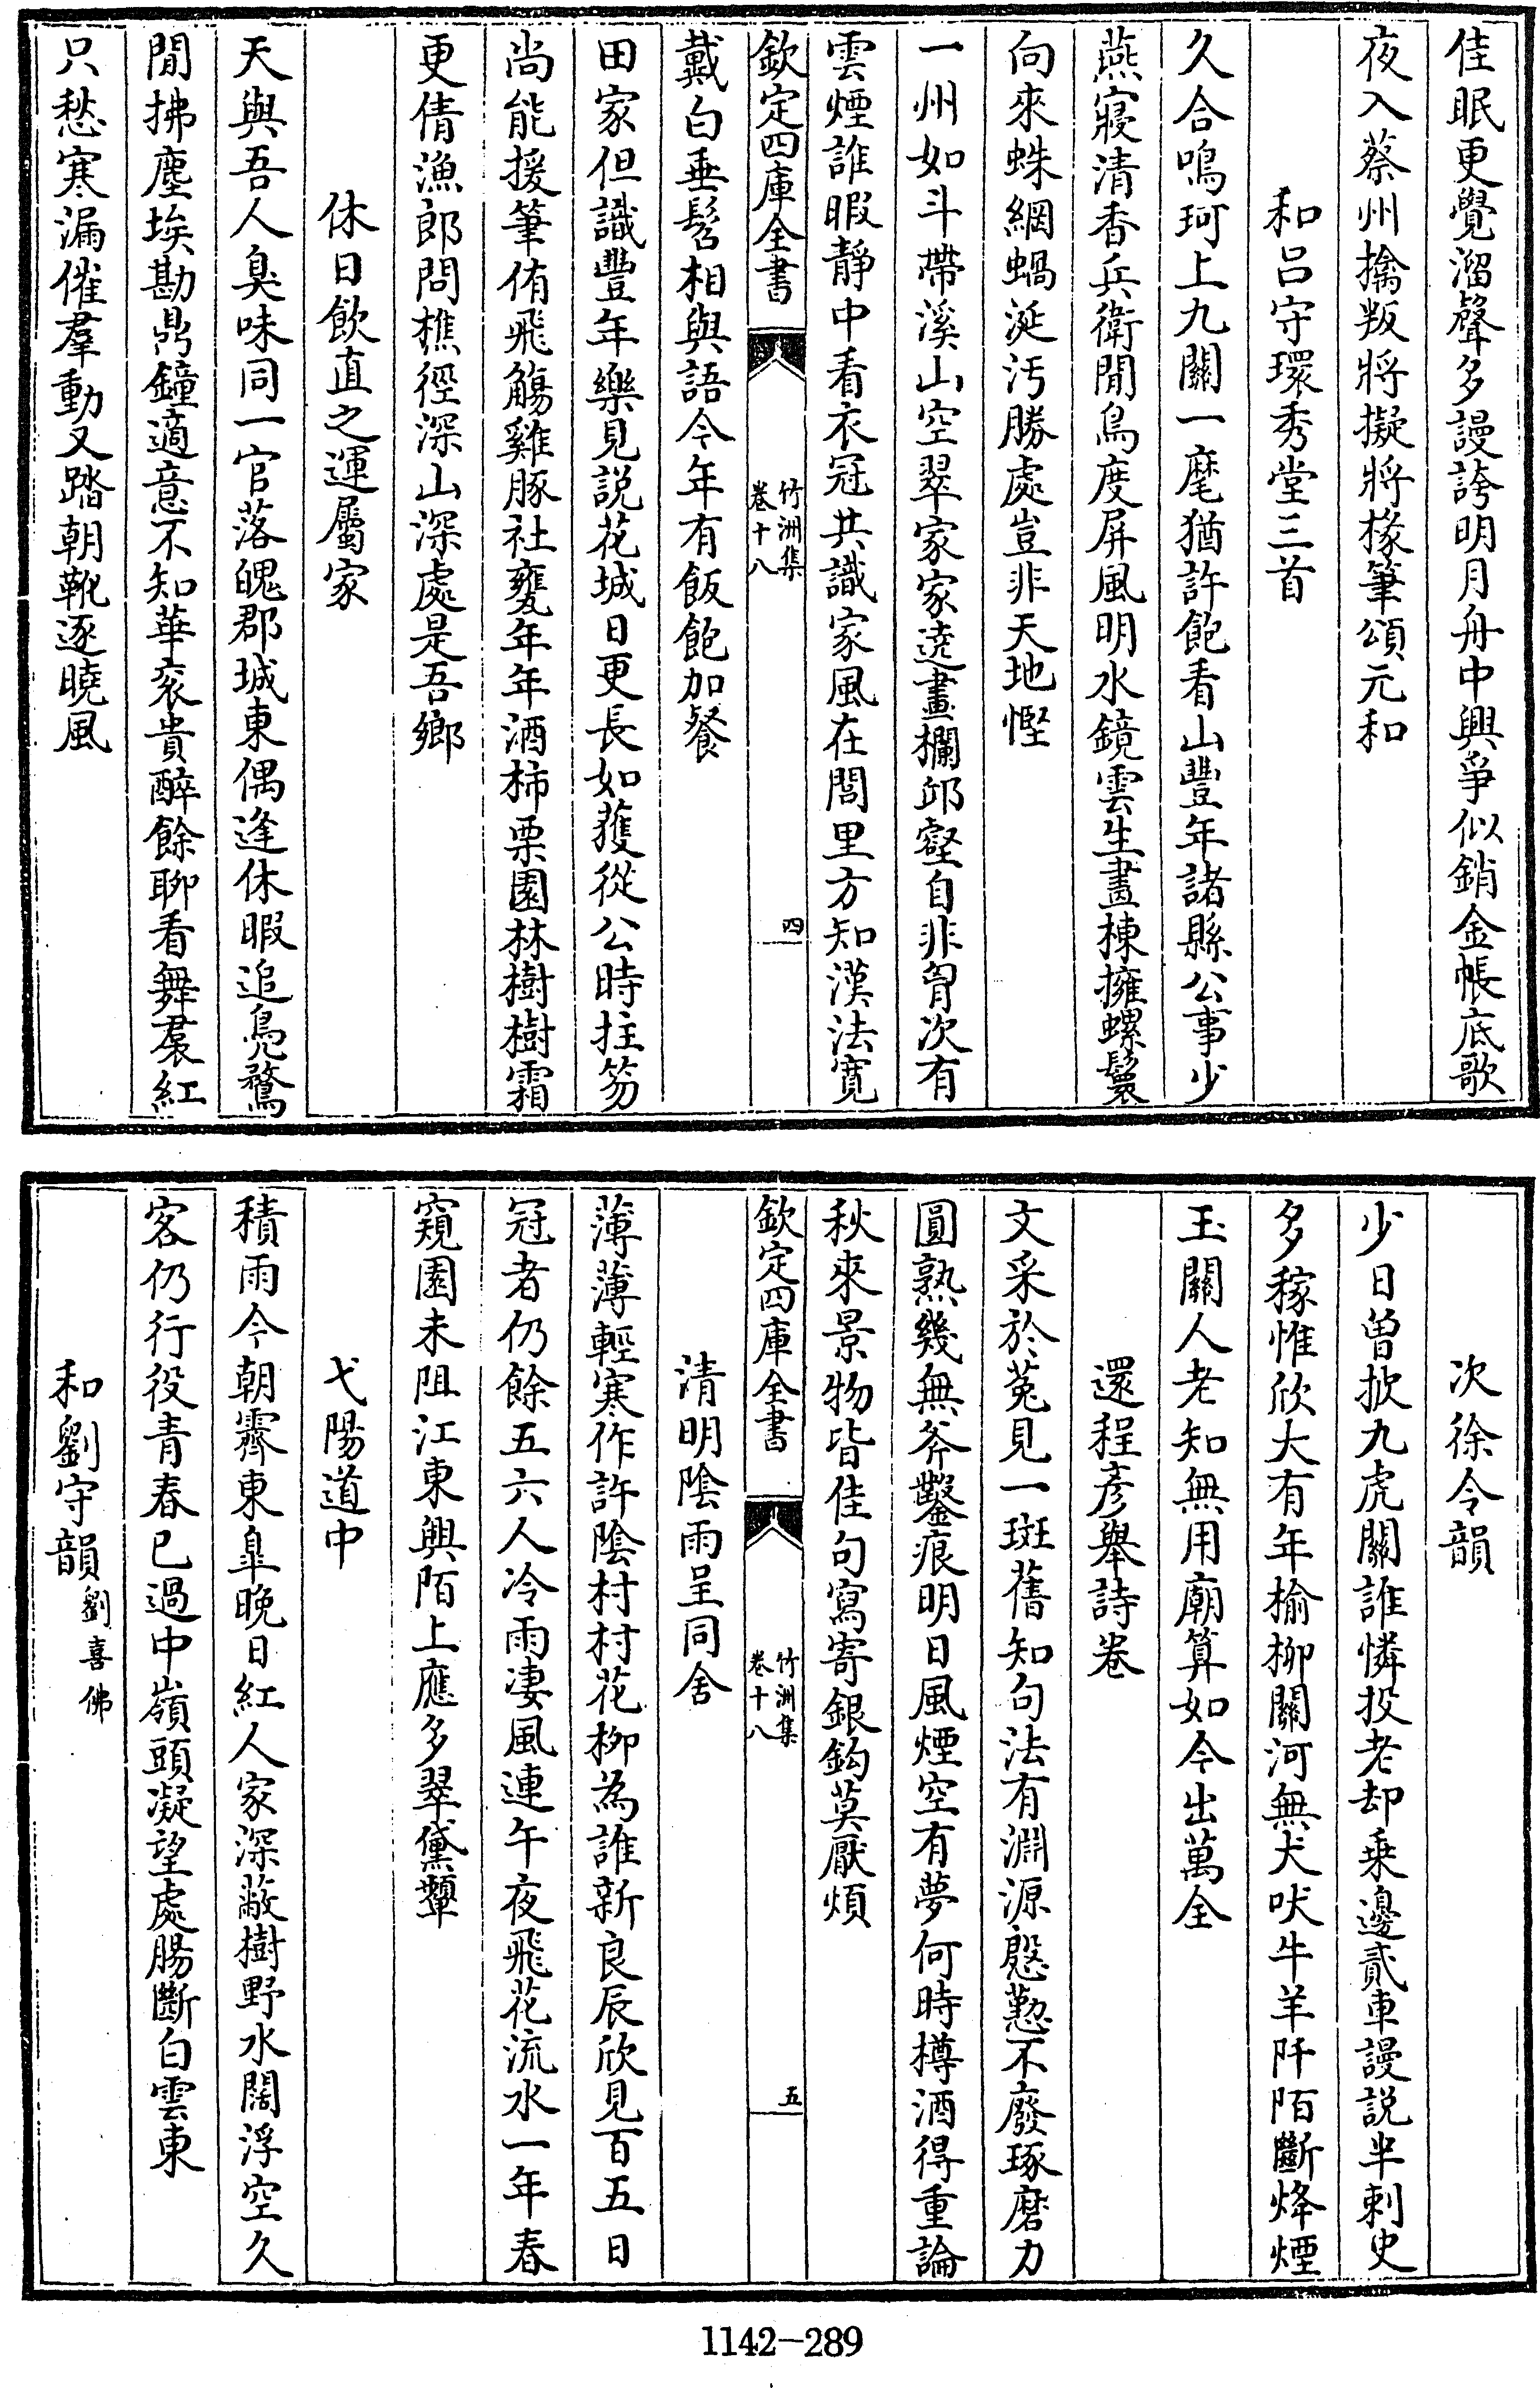 佳眠更覺溜聲多謾誇明月舟中興爭似銷金帳底歌
夜入蔡州擒叛將擬將椽筆頌元和
和呂守環秀堂三首
久合鳴珂上九關一麾猶許飽看山豐年諸縣公事少
燕寢清香兵衛閒鳥度屏風明水鏡雲生畫棟擁螺鬟
向來蛛網蝸涎汚勝處豈非天地慳
一州如斗帶溪山空翠家家遶畫欄邱壑自非胷次有
雲煙誰暇靜中看衣冠共識家風在閭里方知漢法寛
欽定四庫全書
竹洲集
卷十八
四
戴白垂髫相與語今年有飯飽加餐
田家但識豐年樂見説花城日更長如蒦從公時拄笏
尚能援筆侑飛觴雞豚社甕年年酒柿栗園林樹樹霜
更倩漁郎問樵徑深山深處是吾鄉
休日飲直之運屬家
天與吾人臭味同一官落魄郡城東偶逢休暇追鳧鶩
閒拂塵埃勘鼎鐘適意不知華衮貴醉餘聊看舞裠紅
只愁寒漏催羣動又踏朝靴逐曉風
次徐令韻
少日曽披九虎關誰憐投老却乗邊貳車謾説半刺史
多稼惟欣大有年榆栁關河無犬吠牛羊阡陌斷烽煙
玉關人老知無用廟算如今出萬全
還程彦舉詩卷
文采於菟見一斑舊知句法有淵源慇懃不廢琢磨力
圓熟幾無斧鑿痕明日風煙空有夢何時樽酒得重論
秋來景物皆佳句寫寄銀鈎莫厭煩
欽定四庫全書
竹洲集
卷十八
五
清明陰雨呈同舍
薄薄輕寒作許陰村村花栁為誰新良辰欣見百五日
冠者仍餘五六人冷雨凄風連午夜飛花流水一年春
窺園未阻江東興陌上應多翠黛顰
弋陽道中
積雨今朝霽東臯晚日紅人家深蔽樹野水闊浮空久
客仍行役青春已過中嶺頭凝望處腸斷白雲東
和劉守韻劉喜佛
1142-289